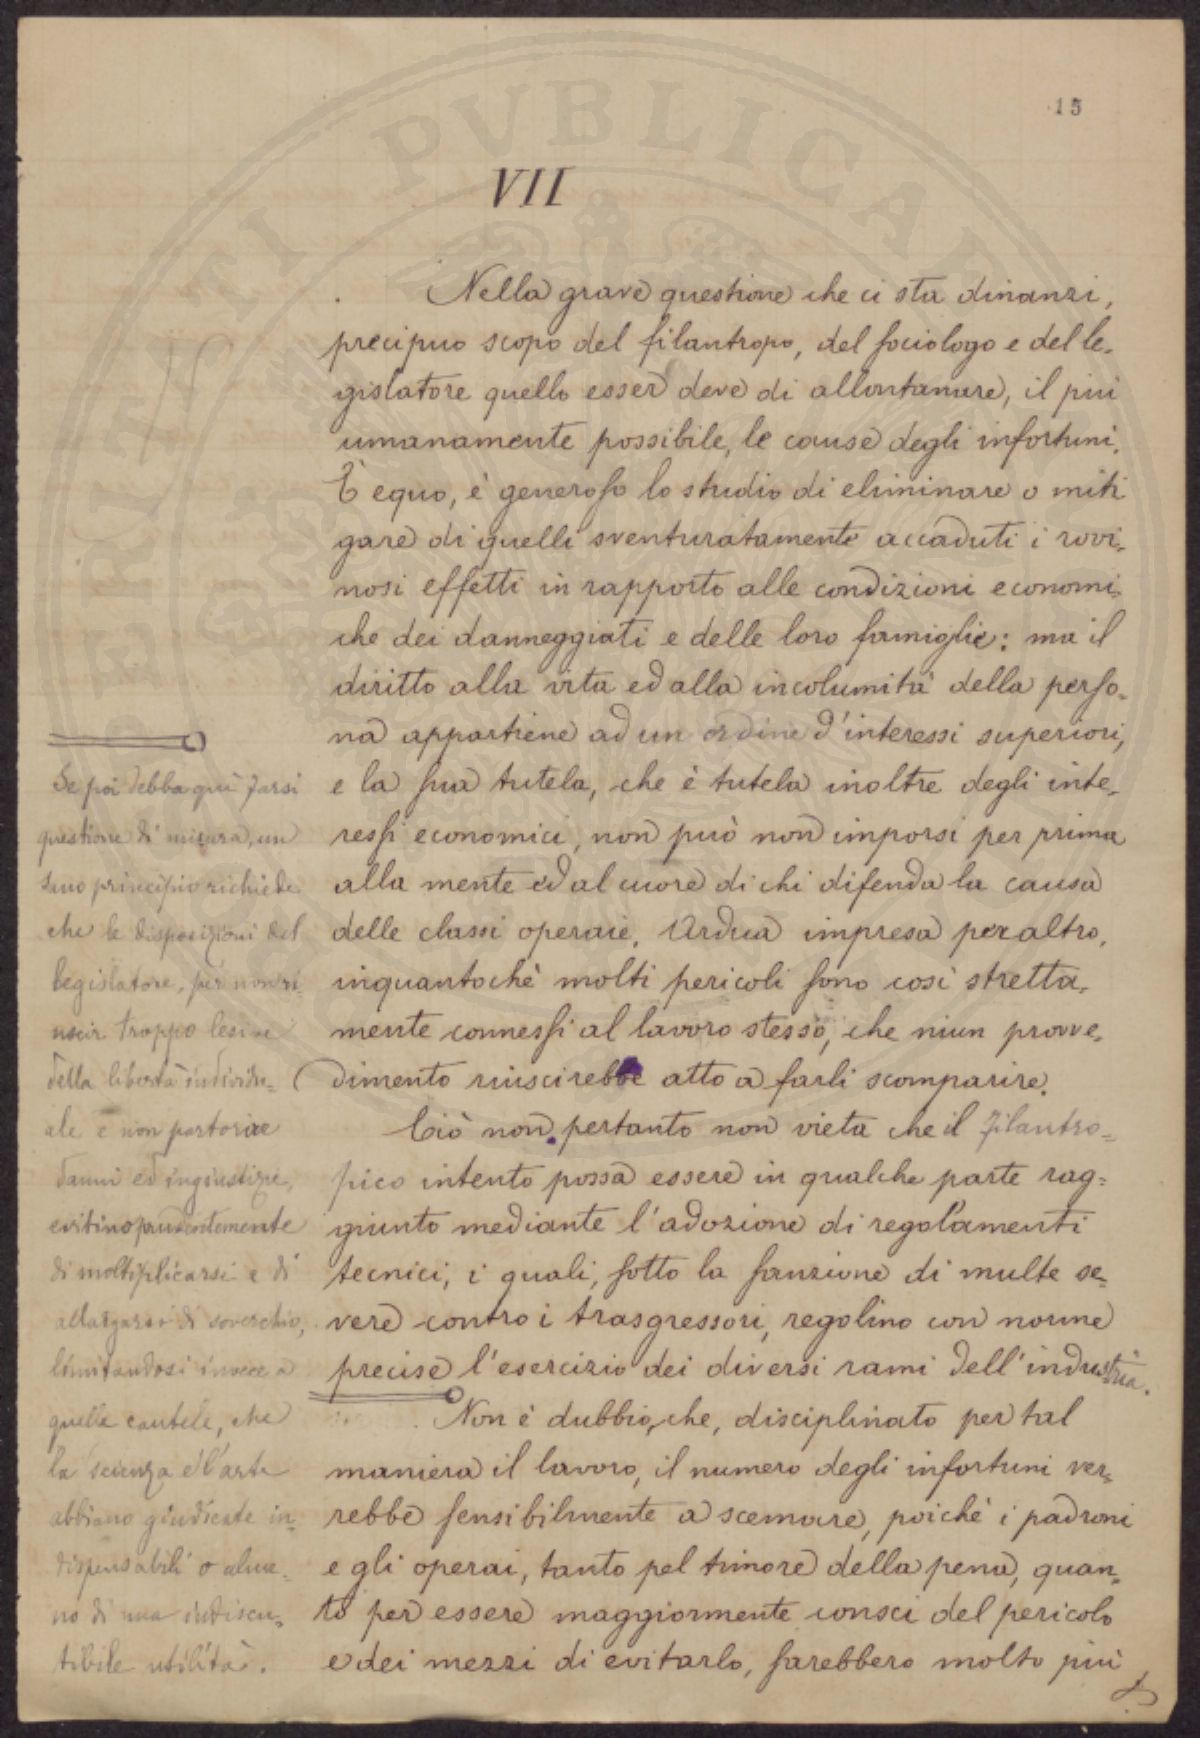 15
VII
Nella grave questione che ci sta dinanzi,
precipuo scopo del filantropo, del sociologo e del le-
gislatore quello esser deve di allontanare, il più
umanamente possibile, le cause degli infortuni.
È equo, è generoso lo studio di eliminare o miti
gare di quelli sventuratamente accaduti i rovi-
nosi effetti in rapporto alle condizioni economi-
che dei danneggiati e delle loro famiglie: ma il
diritto alla vita ed alla incolumità della perso-
na appartiene ad un ordine d'interessi superiori,
e la sua tutela, che è tutela inoltre degli inte-
ressi economici, non può non imporsi per prima
alla mente ed al cuore di chi difenda la causa
delle classi operaie. Ardua impresa peraltro,
inquantochè molti pericoli sono così stretta-
mente connessi al lavoro stesso, che niun provve-
dimento riuscirebbe atto a farli scomparire.
Ciò non pertanto non vieta che il filantro-
pico intento possa essere in qualche parte rag-
giunto mediante l'adozione di regolamenti
tecnici, i quali, sotto la sanzione di multe se-
vere contro i trasgressori, regolino con norme
precise l'esercizio dei diversi rami dell'industria.
Non è dubbio, che, disciplinato per tal
maniera il lavoro, il numero degli infortuni ver-
rebbe sensibilmente a scemare, poichè i padroni
e gli operai, tanto pel timore della pena, quan-
to per essere maggiormente consci del pericolo
e dei mezzi di evitarlo, farebbero molto più
Se poi debba qui farsi
questione di misura, un
sano principio richiede
che le disposizioni del
legislatore, per non ri-
uscir troppo lesive
della libertà individu-
ale e non partorire
danni ed ingiustizie,
evitino prudentemente
di moltiplicarsi e di
allargarsi di soverchio,
limitandosi invece a
quelle cautele, che
la scienza e l'arte
abbiano giudicate in-
dispensabili o alme-
no di una indiscu-
tibile utilità.
PUBLICAE